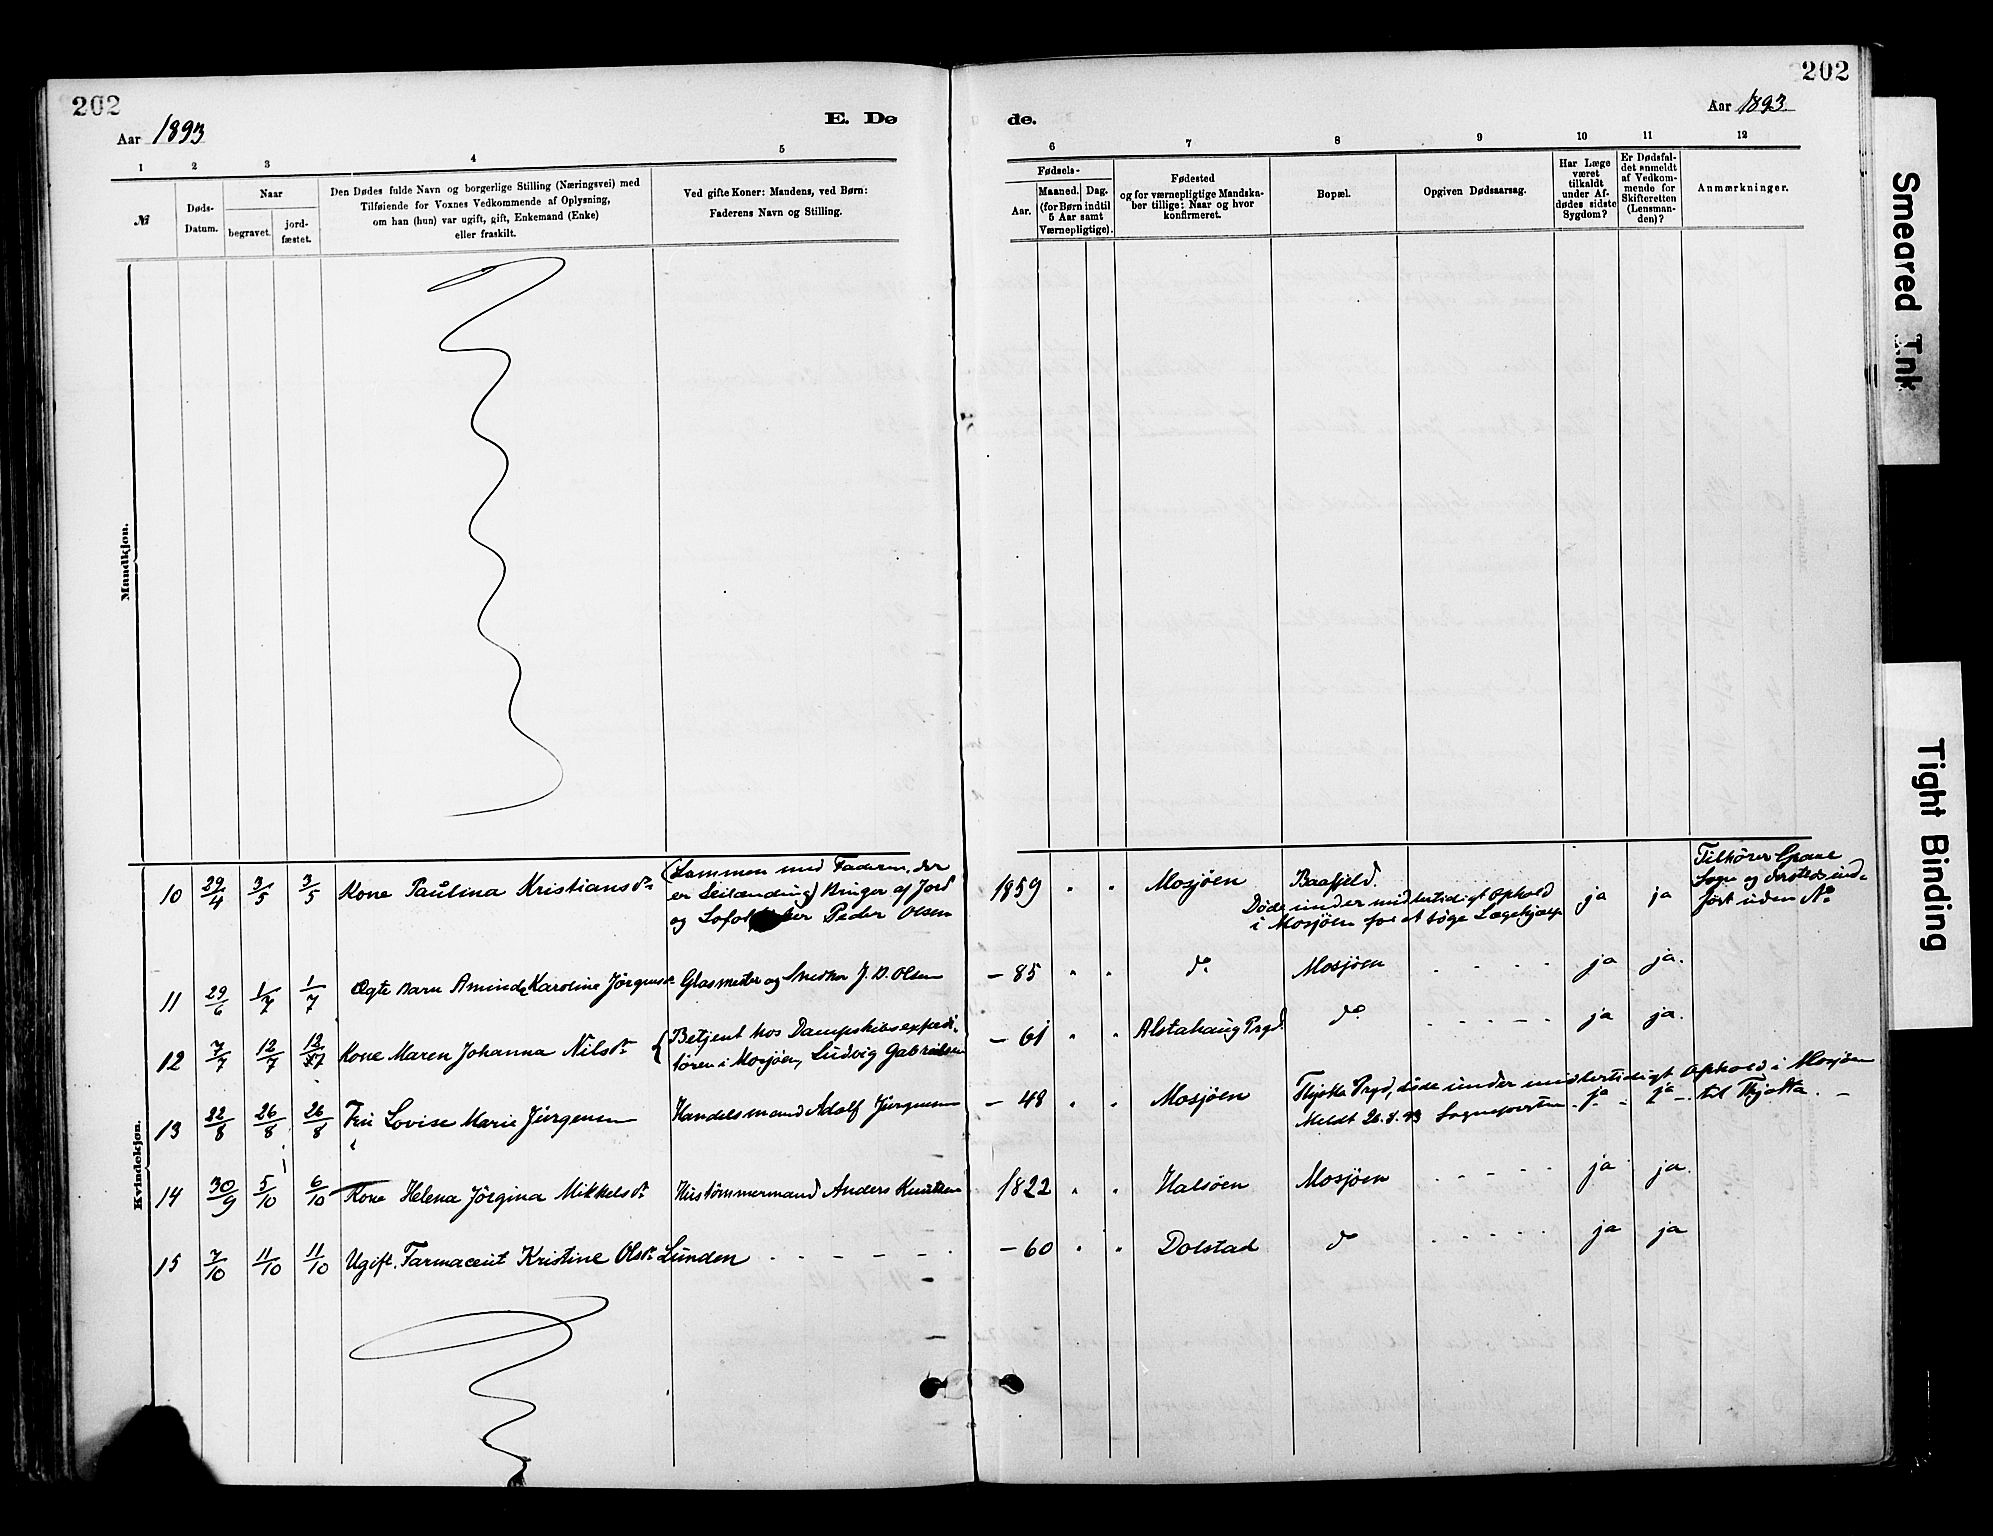 202
Aar 1893
E. Dø
de.
Aar 1893.
202
1 2 3 4 5 6 7 8 9 10 11 12
№
Døds-
Datum.
Naar
begravet.
jord-
fæstet.
Den Dødes fulde Navn og borgerlige Stilling (Næringsvei) med
Tilføiende for Voxnes Vedkommende af Oplysning,
om han (hun) var ugift, gift, Enkemand (Enke)
eller fraskilt.
Ved gifte Koner: Mandens, ved Børn:
Faderens Navn og Stilling.
Fødsels-
Aar.
Maaned. Dag.
(for Børn indtil
5 Aar samt
Værnepligtige).
Fødested
og for værnepligtige Mandska-
ber tillige: Naar og hvor
konfirmeret.
Bopæl.
Opgiven Dødsaarsag.
Har Læge
været
tilkaldt
under Af-
dødes sidste
Sygdom?
Er Dødsfal-
det anmeldt
af Vedkom-
mende for
Skifteretten
(Lensman-
den)?
Anmærkninger.
Mandkjøn.
Kvindekjøn.
10 29/4 3/5 3/5 Kone Paulina Kristiansdr
(Sammen med Faderen, der
er Leilænding) Bruger af Jord
og Peder Olsen
1859 " " Mosjøen Baafjeld.
Døde under midlertidigt Ophold
i Mosjøen for at søge Lægehjælp
ja ja
Tilhører Grane
Sogn og dersteds ind-
ført uden No
11 29/6 1/7 1/7 Ægte Barn Aminda Karoline Jörgensdr Glasmester og Snedker J. D. Olsen - 85 " " do Mosjöen - - - - ja ja.
12 7/7 12/7 12/7 Kone Maren Johanna Nilsdr { Betjent hos Dampskibsexpedi-
tören i Mosjöen, Ludvig Gabrielsen
- 61 " " Alstahaug Prgd. do - - - - - ja ja.
13 22/8 26/8 26/8 Fru Lovise Marie Jürgensen Handelsmand Adolf Jürgensen - 48 " " Mosjöen Thjøtta Prgd, döde under midlertidigt Ophold i Mosjöen
Meldt 26.8.93 Sognepresten ja - ja - til Thjøtta. -
14 30/9 5/10 6/10 Kone Helena Jörgina Mikkelsdr Hustömmermand Anders Knutsen 1822 " " Halsöen Mosjöen - - - - ja ja.
15 7/10 11/10 11/10 Ugift. Farmaceut Kristine Olsdr Lunden - - - - - - 60 " " Dolstad do - - - - - ja ja
Smeared Ink
Tight Binding